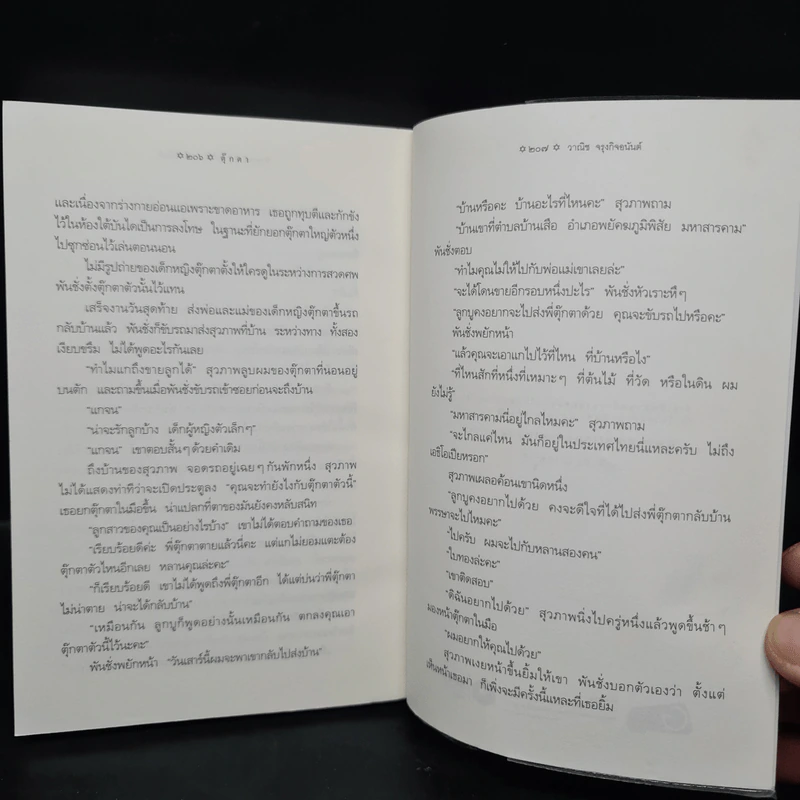 ✡ ๒๐๖ ✡ ตุ๊กตา
และเนื่องจากร่างกายอ่อนแอเพราะขาดอาหาร เธอถูกทุบตีและกักขัง
ไว้ในห้องใต้บันไดเป็นการลงโทษ ในฐานะที่ยักยอกตุ๊กตาใหญ่ตัวหนึ่ง
ไปซุกซ่อนไว้เล่นตอนนอน
ไม่มีรูปถ่ายของเด็กหญิงตุ๊กตาตั้งให้ใครดูในระหว่างการสวดศพ
พันชั่งตั้งตุ๊กตาตัวนั้นไว้แทน
เสร็จงานวันสุดท้าย ส่งพ่อและแม่ของเด็กหญิงตุ๊กตาขึ้นรถ
กลับบ้านแล้ว พันชั่งก็ขับรถมาส่งสุวภาพที่บ้าน ระหว่างทาง ทั้งสอง
เงียบขรึม ไม่ได้พูดอะไรกันเลย
“ทำไมแกถึงขายลูกได้” สุวภาพลูบผมของตุ๊กตาที่นอนอยู่
บนตัก และถามขึ้นเมื่อพันชั่งขับรถเข้าซอยก่อนจะถึงบ้าน
“แกจน”
“น่าจะรักลูกบ้าง เด็กผู้หญิงตัวเล็กๆ”
“แกจน” เขาตอบสั้นๆ ด้วยคำเดิม
ถึงบ้านของสุวภาพ จอดรถอยู่เฉยๆ กันพักหนึ่ง สุวภาพ
ไม่ได้แสดงท่าทีว่าจะเปิดประตูลง “คุณจะทำยังไงกับตุ๊กตาตัวนี้”
เธอยกตุ๊กตาในมือขึ้น น่าแปลกที่ตาของมันยังคงหลับสนิท
“ลูกสาวของคุณเป็นอย่างไรบ้าง” เขาไม่ได้ตอบคำถามของเธอ
“เรียบร้อยดีค่ะ พี่ตุ๊กตาตายแล้วนี่คะ แต่แกไม่ยอมแตะต้อง
ตุ๊กตาตัวไหนอีกเลย หลานคุณล่ะคะ”
“ก็เรียบร้อยดี เขาไม่ได้พูดถึงพี่ตุ๊กตาอีก ได้แต่บ่นว่าพี่ตุ๊กตา
ไม่น่าตาย น่าจะได้กลับบ้าน”
“เหมือนกัน ลูกบูก็พูดอย่างนั้นเหมือนกัน ตกลงคุณเอา
ตุ๊กตาตัวนี้ไว้นะคะ”
พันชั่งพยักหน้า “วันเสาร์นี้ผมจะพาเขากลับไปส่งบ้าน”
✡ ๒๐๗ ✡ วาณิช จรุงกิจอนันต์
“บ้านหรือคะ บ้านอะไรที่ไหนคะ” สุวภาพถาม
“บ้านเขาที่ตำบลบ้านเสือ อำเภอพยัคฆภูมิพิสัย มหาสารคาม”
พันชั่งตอบ
“ทำไมคุณไม่ให้ไปกับพ่อแม่เขาเลยล่ะ”
“จะได้โดนขายอีกรอบหนึ่งปะไร” พันชั่งหัวเราะหึๆ
“ลูกบูคงอยากจะไปส่งพี่ตุ๊กตาด้วย คุณจะขับรถไปหรือคะ”
พันชั่งพยักหน้า
“แล้วคุณจะเอาแกไปไว้ที่ไหน ที่บ้านหรือไง”
“ที่ไหนสักที่หนึ่งที่เหมาะๆ ที่ต้นไม้ ที่วัด หรือในดิน ผม
ยังไม่รู้”
“มหาสารคามนี่อยู่ไกลไหมคะ” สุวภาพถาม
“จะไกลแค่ไหน มันก็อยู่ในประเทศไทยนี่แหละครับ ไม่ถึง
เอธิโอเปียหรอก”
สุวภาพเผลอค้อนเขานิดหนึ่ง
“ลูกบูคงอยากไปด้วย คงจะดีใจที่ได้ไปส่งพี่ตุ๊กตากลับบ้าน
พรรษาจะไปไหมคะ”
“ไปครับ ผมจะไปกับหลานสองคน”
“ใบทองล่ะคะ”
“เขาติดสอบ”
“ดิฉันอยากไปด้วย” สุวภาพนิ่งไปครู่หนึ่งแล้วพูดขึ้นช้าๆ
มองหน้าตุ๊กตาในมือ
“ผมอยากให้คุณไปด้วย”
สุวภาพเงยหน้าขึ้นยิ้มให้เขา พันชั่งบอกตัวเองว่า ตั้งแต่
เห็นหน้าเธอมา ก็เพิ่งจะมีครั้งนี้แหละที่เธอยิ้ม